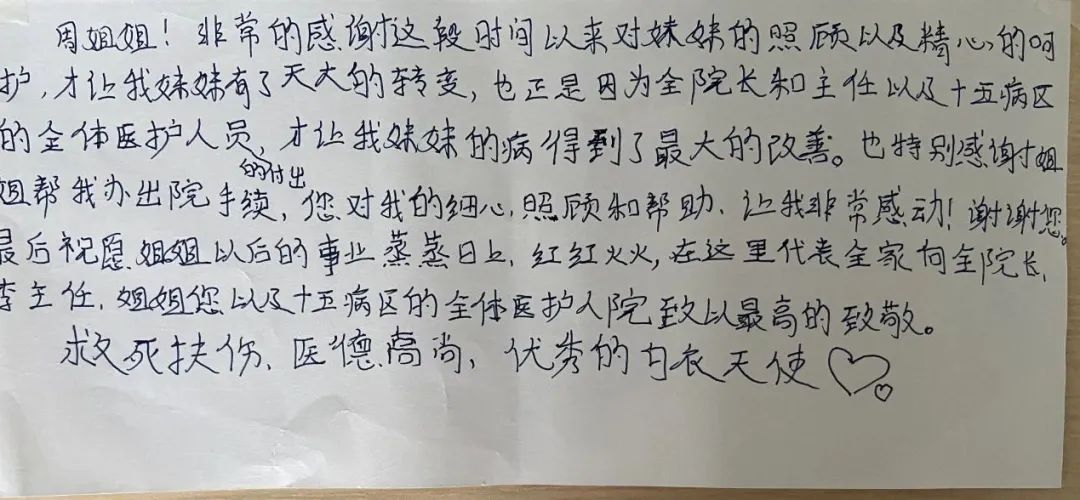 周姐姐！非常的感谢这段时间以来对妹妹的照顾以及精心的呵
护，才让我妹妹有了天大的转变，也正是因为全院长和主任以及十五病区
的全体医护人员，才让我妹妹的病得到了最大的改善。也特别感谢姐
姐帮我办出院手续的付出，您对我的细心，照顾和帮助、让我非常感动！谢谢您。
最后祝愿姐姐以后的事业蒸蒸日上，红红火火，在这里代表全家向全院长、
李主任、姐姐您以及十五病区的全体医护人院致以最高的致敬。
救死扶伤、医德高尚，优秀的白衣天使